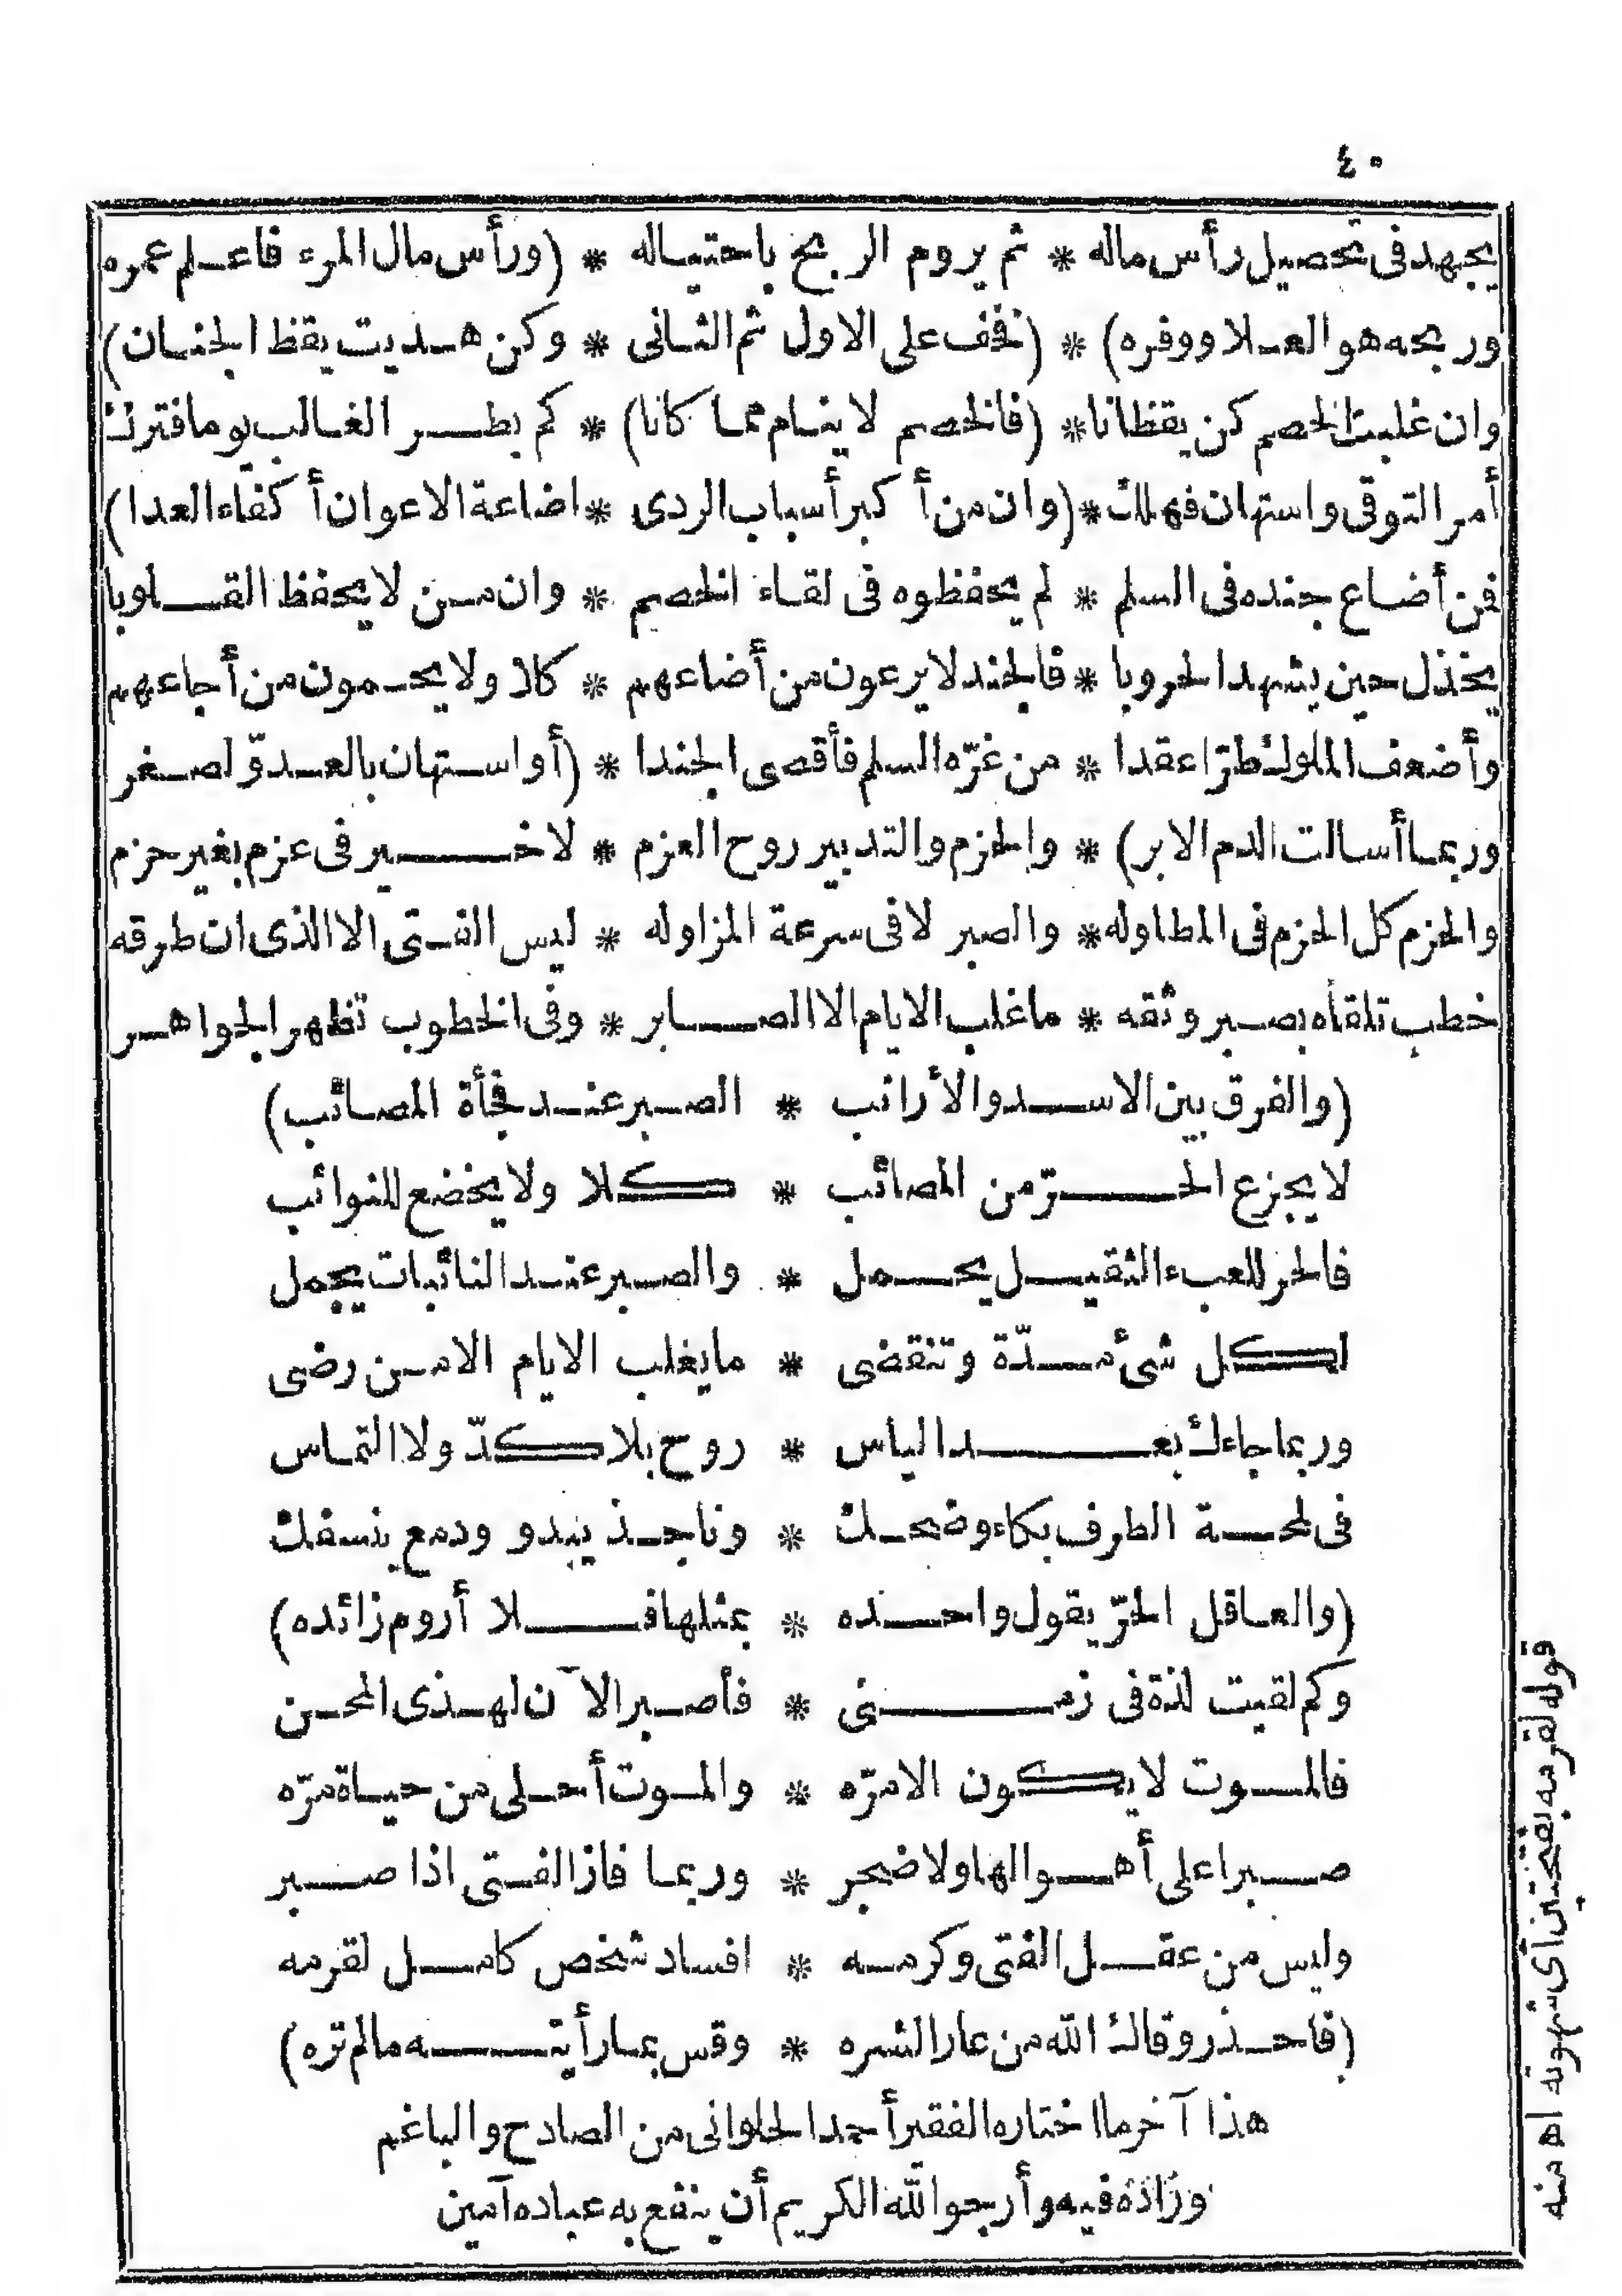 ٤٠
يجهد فى تحصيل رأس ماله * ثم يروم الربح باحتياله * (ورأس مال المرء فاعلم عمره
وربحه هو العلا ووفره) * (نخف على الاول ثم الثانى * وكن هديت يقظ الجنان)
وان غلبت الخصم كن يقظانا * (فالخصم لا ينام مما كانا) * كم بطر الغالب يوما فترك
أمر التوقى واستهان فهلك * (وان من أكبر أسباب الردى * اضاعة الاعوان أكفاء العدا)
فمن أضاع جنده فى السلم * لم يحفظوه فى لقاء الخصم * وان من لا يحفظ القلوبا
يخذل حين يشهد الحروبا * فالجند لا يرعون من أضاعهم * كلا ولا يحمون من أجاعهم
وأضعف الملوك طرّا عقدا * من غرّه السلم فأقصى الجندا * (أو استهان بالعدوّ لصغر
وربما أسالت الدم الابر) * والحزم والتدبير روح العزم * لا خير فى عزم بغير حزم
والحزم كل الحزم فى المطاوله * والصبر لا فى سرعة المزاوله * ليس الفتى الا الذى ان طرقه
خطب تلقاه بصبر وثقه * ما غلب الايام الا الصابر * وفى الخطوب تظهر الجواهر
(والفرق بين الاسد والأرانب * الصبر عند فجأة المصائب)
لا يجزع الحرّ من المصائب * كلا ولا يخضع للنوائب
فالحر للعبء الثقيل يحمل * والصبر عند النائبات يجمل
لكل شئ مدّة وتنقضى * ما يغلب الايام الا من رضى
وربما جاءك بعد الياس * روح بلا كدّ ولا التماس
فى لمحة الطرف بكاء وضحك * وناجذ يبدو ودمع ينسفك
(والعاقل الحرّ يقول واحده * بمثلها فلا أروم زائده)
وكم لقيت لذة فى زمنى * فأصبر الآن لهذى المحن
فالموت لا يكون الا مرّه * والموت أحلى من حياة مرّه
صبرا على أهوالها ولا ضجر * وربما فاز الفتى اذا صبر
وليس من عقل الفتى وكرمه * افساد شخص كامل لقرمه
(فاحذر وقاك الله من عار الشره * وقس بما رأيته ما لم تره)
هذا آخر ما اختاره الفقير أحمد الحلوانى من الصادح والباغم
وزاده فيه وأرجو الله الكريم أن ينفع به عباده آمين
قوله لقرمه بفتحتين أى شهوته اه منه